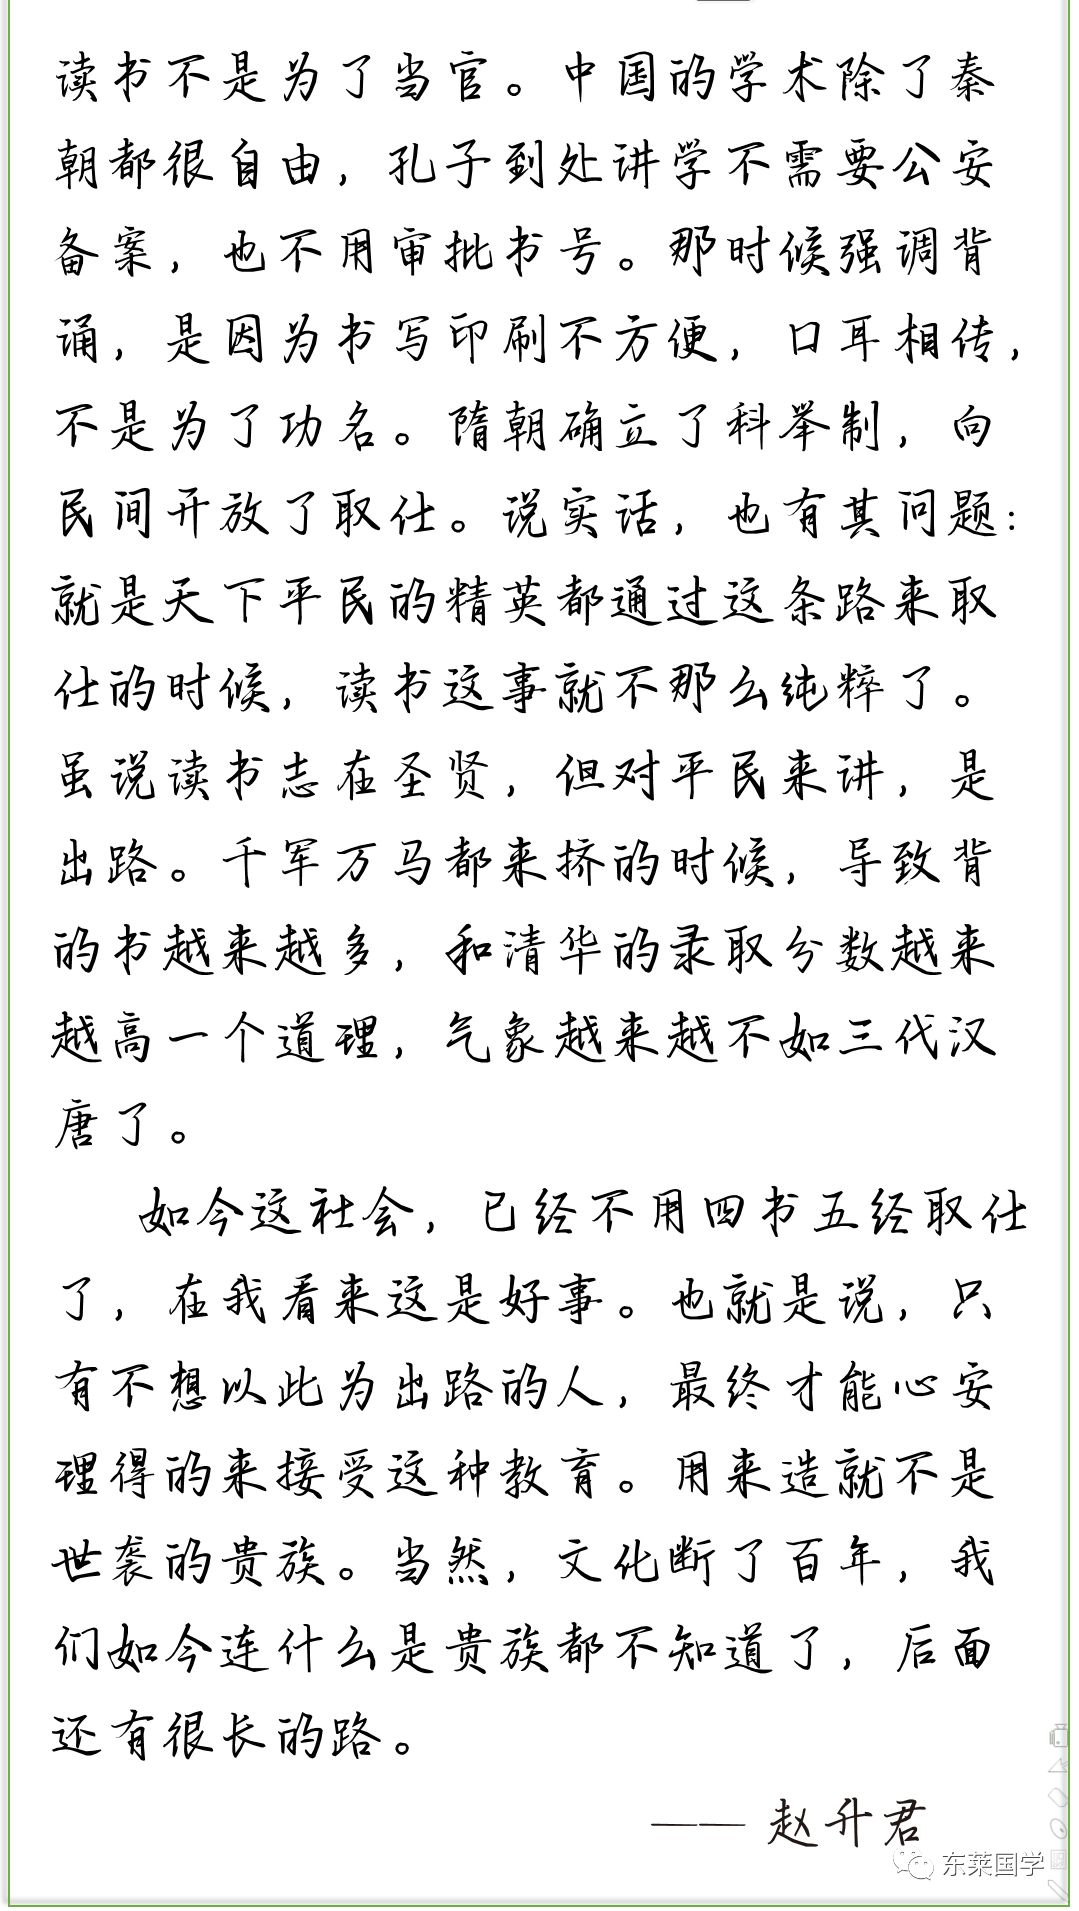 读书不是为了当官。中国的学术除了秦
朝都很自由，孔子到处讲学不需要公安
备案，也不用审批书号。那时候强调背
诵，是因为书写印刷不方便，口耳相传，
不是为了功名。隋朝确立了科举制，向
民间开放了取仕。说实话，也有其问题：
就是天下平民的精英都通过这条路来取
仕的时候，读书这事就不那么纯粹了。
虽说读书志在圣贤，但对平民来讲，是
出路。千军万马都来挤的时候，导致背
的书越来越多，和清华的录取分数越来
越高一个道理，气象越来越不如三代汉
唐了。
如今这社会，已经不用四书五经取仕
了，在我看来这是好事。也就是说，只
有不想以此为出路的人，最终才能心安
理得的来接受这种教育。用来造就不是
世袭的贵族。当然，文化断了百年，我
们如今连什么是贵族都不知道了，后面
还有很长的路。
—— 赵升君
东莱国学